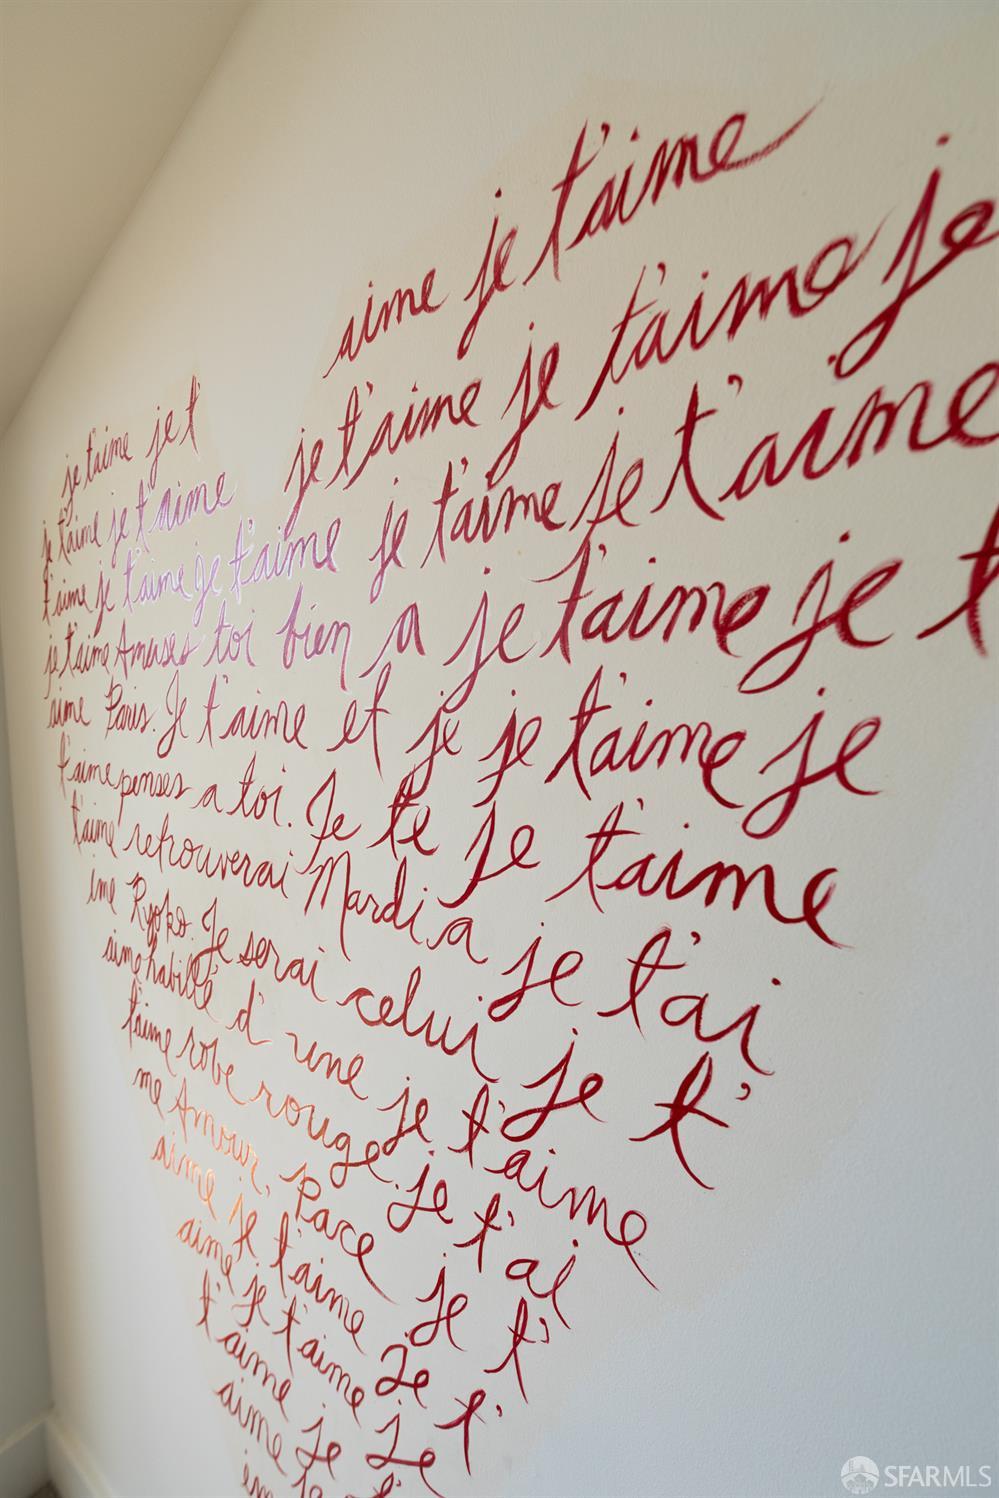 je t'aime je t' aime je t'aime
je t'aime je t'aime je t'aime je t'aime je
t'aime je t'aime je t'aime je t'aime je t'aime
je t'aime Amuses toi bien a je t'aime je t
aime Paris. Je t'aime et je je t'aime je
t'aime penses a toi. Je te je t'aime
t'aime retrouverai Mardi a je t'ai
ime Ryoko. Je serai celui je t'
aime habillé d'une je t'aime
t'aime robe rouge. je t'ai
me Amour, Pace je t'
aime je t'aime Je t'
aime je t'aime je
t'aime je
aime je
im
SFARMLS